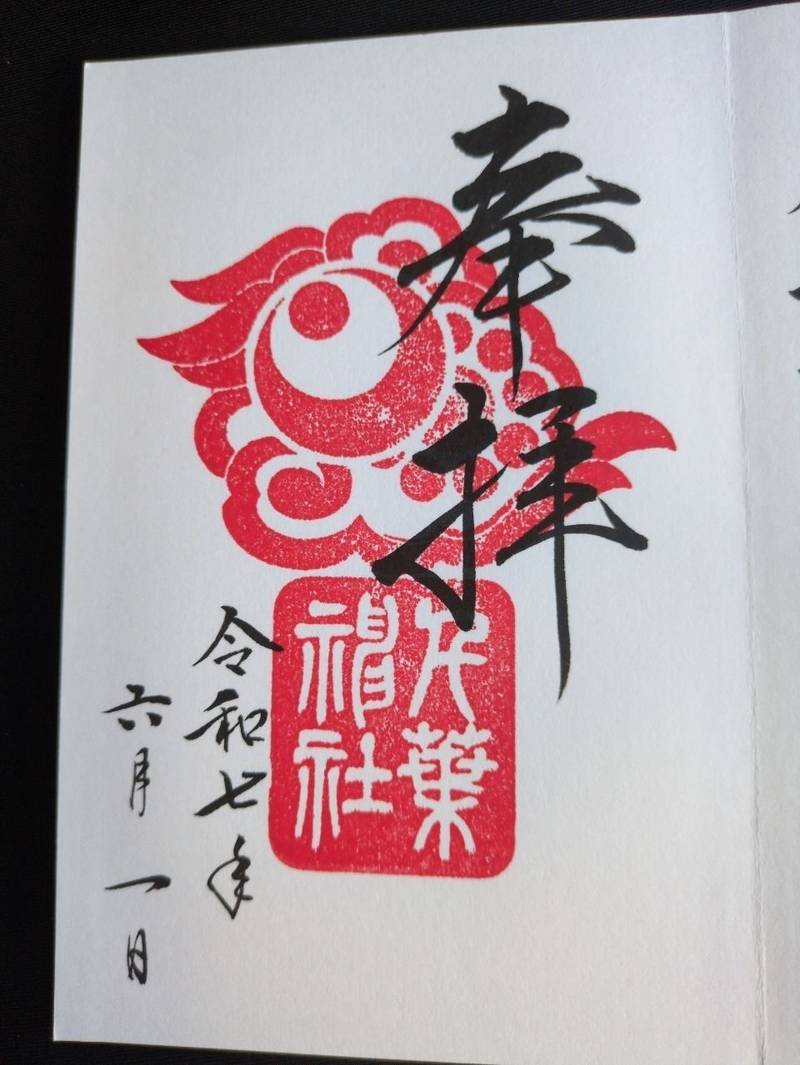 奉拝
千葉
神社
令和七年
六月一日